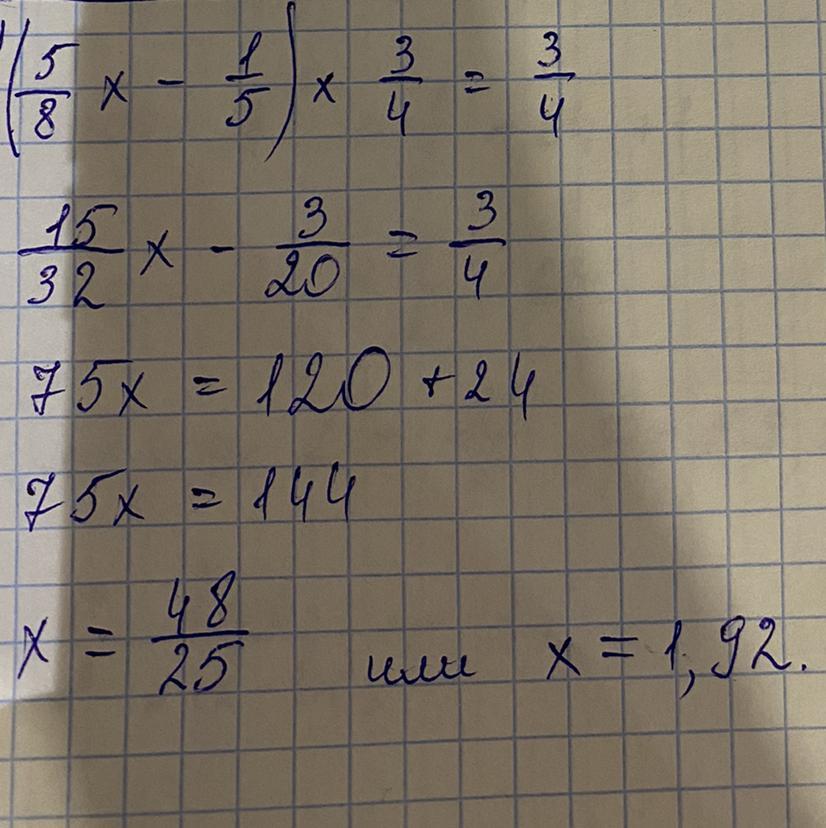 (5/8 x - 1/5) x 3/4 = 3/4
15/32 x - 3/20 = 3/4
75x = 120 + 24
75x = 144
x = 48/25 или x = 1,92.